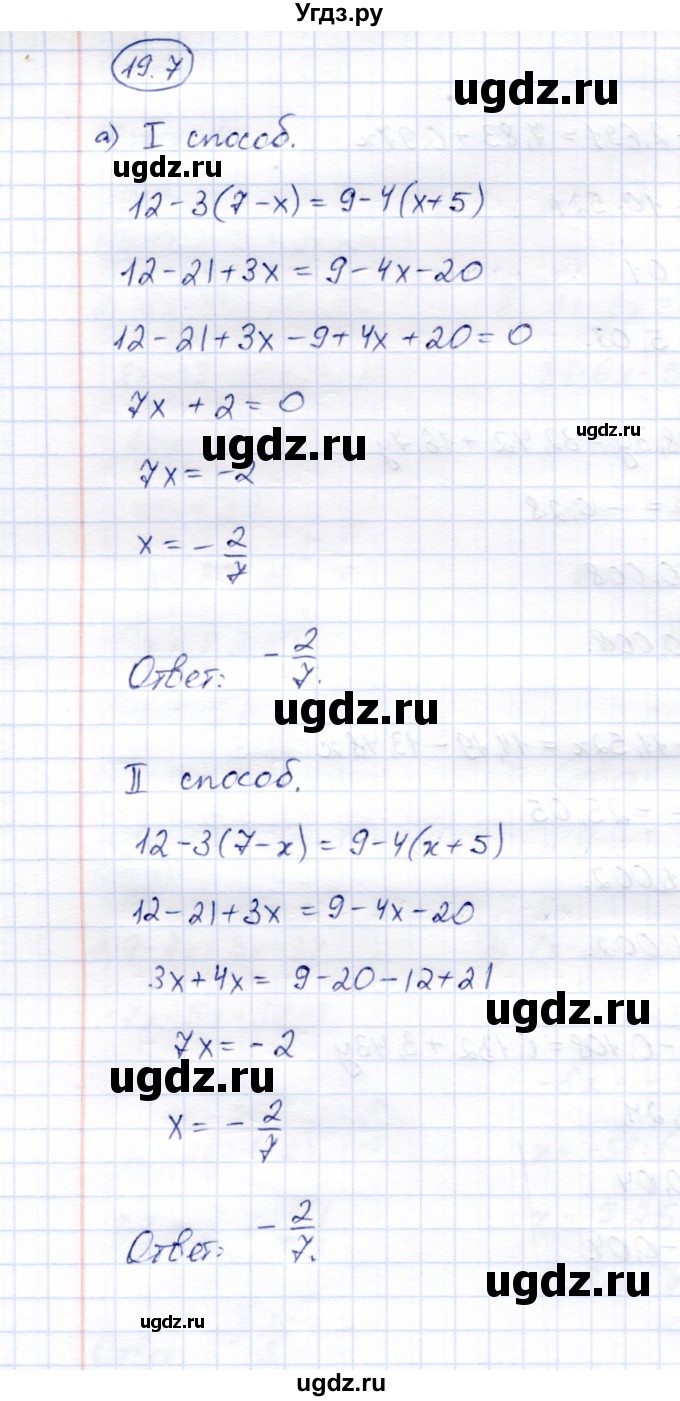 Угдз.ру
19.7
ugdz.ru
а) I способ.
ugdz.ru
12-3(7-x)=9-4(x+5)
12-21+3x=9-4x-20
12-21+3x-9+4x+20=0
7x+2=0
ugdz.ru
ugdz.ru
7x=-2
x=-2/7
Ответ: -2/7.
ugdz.ru
II способ.
12-3(7-x)=9-4(x+5)
12-21+3x=9-4x-20
3x+4x=9-20-12+21
ugdz.ru
7x=-2
ugdz.ru
x=-2/7
Ответ: -2/7.
ugdz.ru
ugdz.ru
ugdz.ru